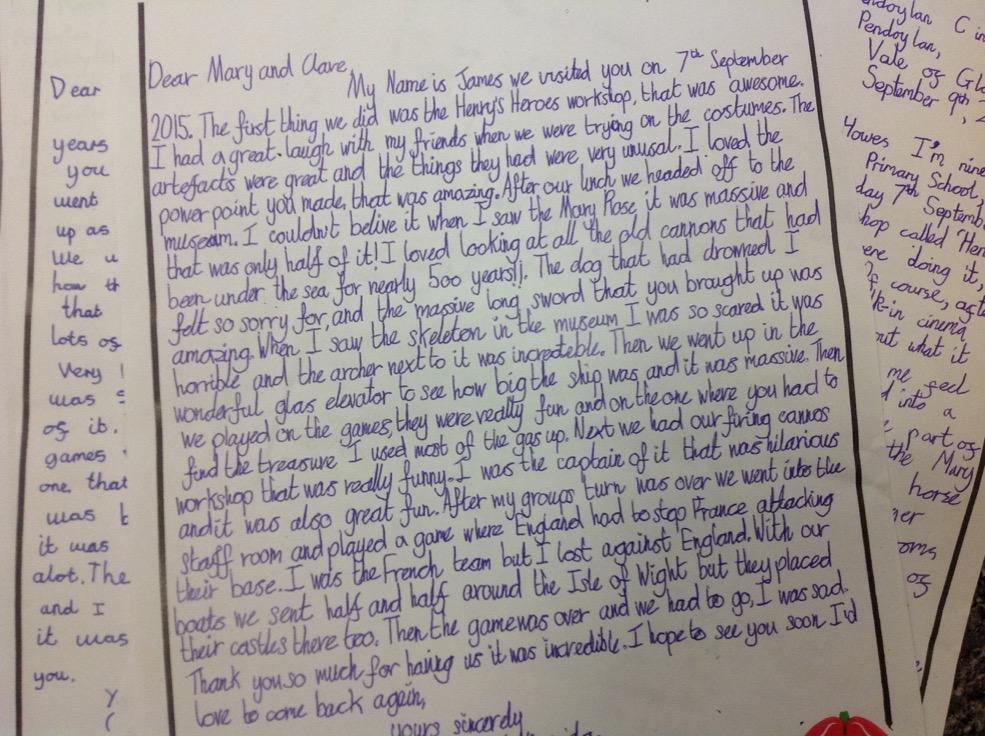 Dear Mary and Clare,
My Name is James we visited you on 7th September
2015. The first thing we did was the Henry's Heroes workshop, that was awesome.
I had a great laugh with my friends when we were trying on the costumes. The
artefacts were great and the things they had were very unusal. I loved the
powerpoint you made, that was amazing. After our lunch we headed off to the
museam. I couldn't belive it when I saw the Mary Rose, it was massive and
that was only half of it! I loved looking at all the old cannons that had
been under the sea for nearly 500 years!!. The dog that had drowned I
felt so sorry for, and the massive long sword that you brought up was
amazing. When I saw the skeleton in the museum I was so scared it was
horrible and the archer next to it was increateble. Then we went up in the
wonderful glas elevator to see how big the ship was and it was massive. Then
we played on the games, they were really fun and on the one where you had to
find the treasure I used most of the gas up. Next we had our firing cannos
workshop that was really funny. I was the captain of it that was hilarious
and it was also great fun. After my groups turn was over we went into the
staff room and played a game where England had to stop France attacking
their base. I was the French team but I lost against England. With our
boats we sent half and half around the Isle of Wight but they placed
their castles there too. Then the game was over and we had to go, I was sad.
Thank you so much for having us it was incredible. I hope to see you soon I'd
love to come back again,
yours sincerdy,
Dear
years
you
went
up as
We
how
that
lots of
Very
was
of it.
games
one that
was
it was
alot. The
and I
it was
you.
Pendoylan,
Vale of
September 9th,
Howes I'm nine
Primary School,
day 7th
called
ere doing it,
course,
cinema
what it
me feel
into a
part of
the Mary
horse
of